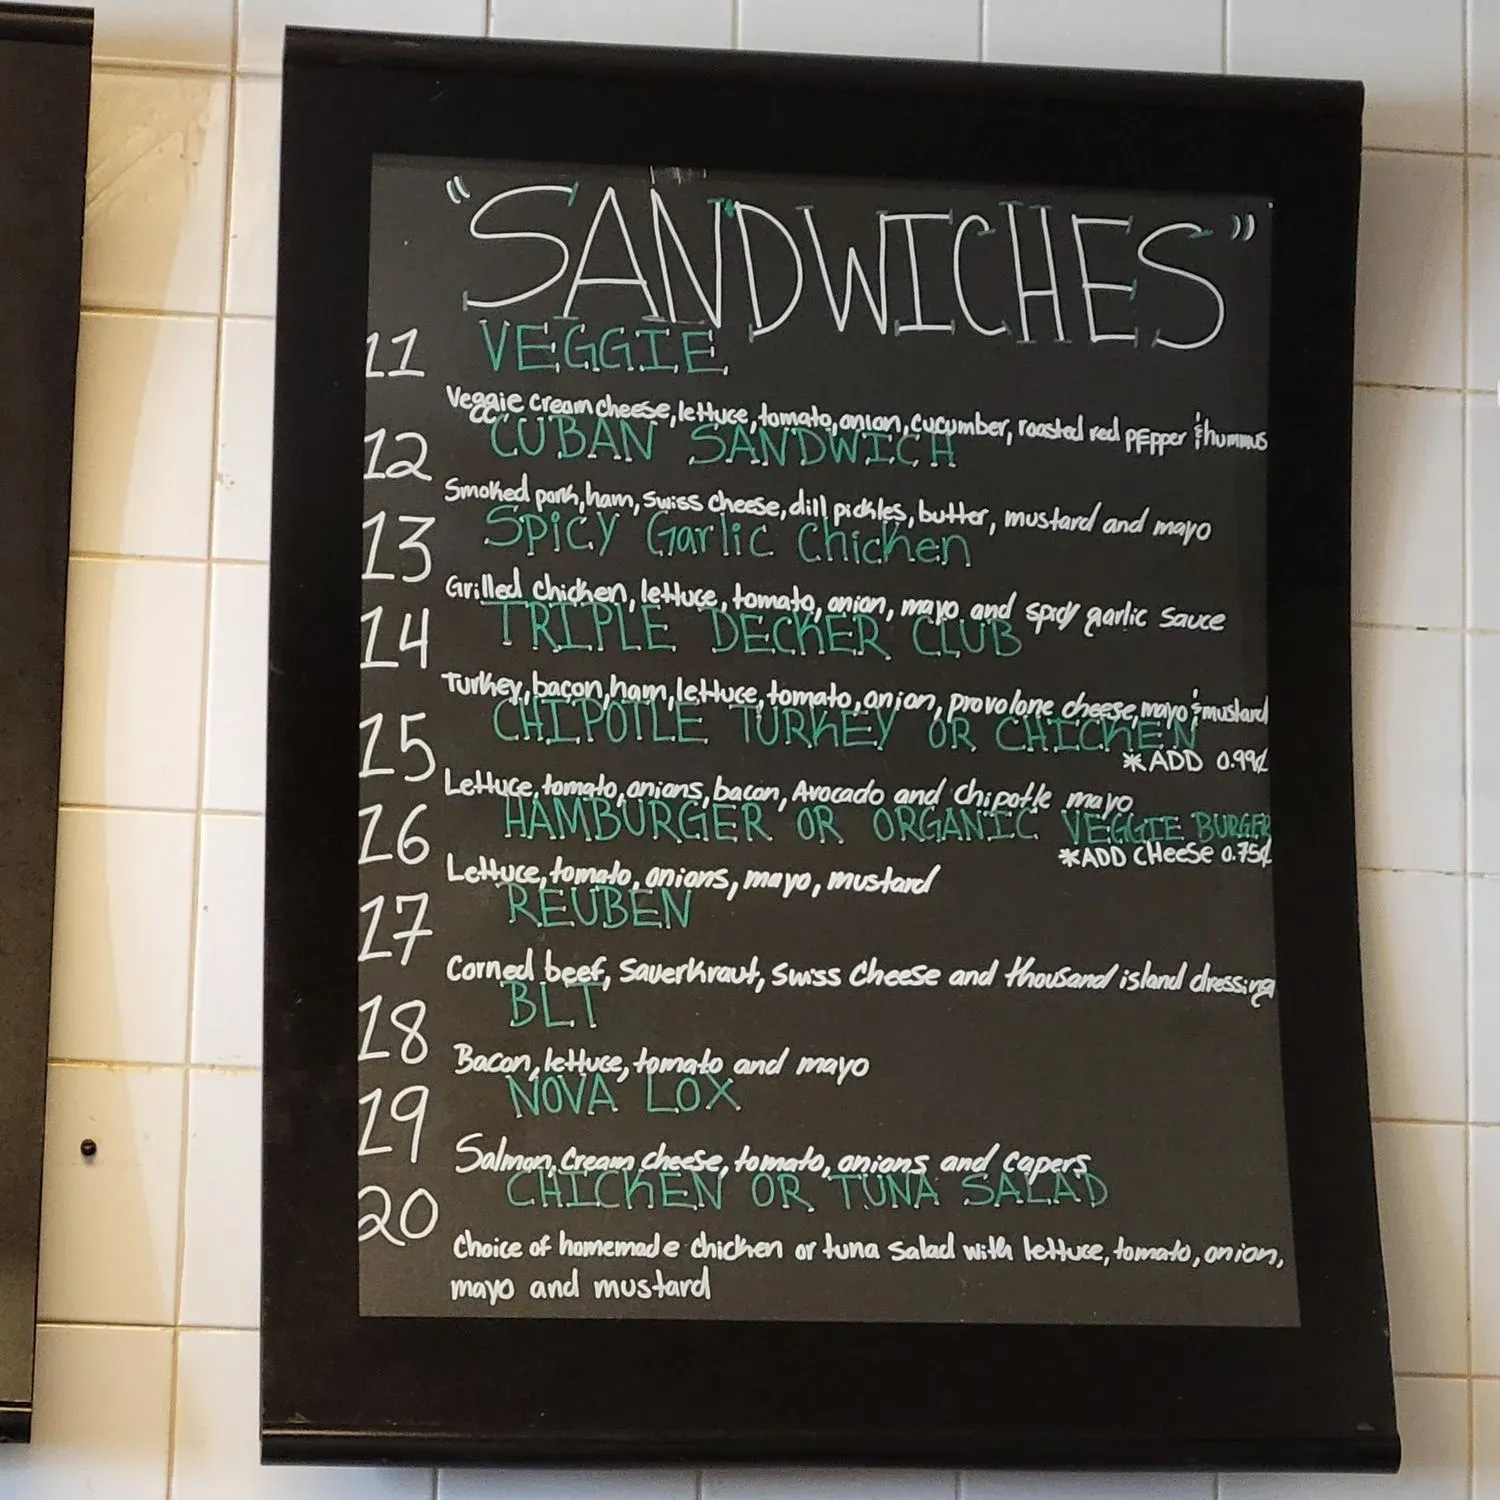 "SANDWICHES"
11 VEGGIE
Veggie cream cheese, lettuce, tomato, onion, cucumber, roasted red pepper & hummus
12 CUBAN SANDWICH
Smoked pork, ham, swiss cheese, dill pickles, butter, mustard and mayo
13 Spicy Garlic Chicken
Grilled chicken, lettuce, tomato, onion, mayo and spicy garlic sauce
14 TRIPLE DECKER CLUB
Turkey, bacon, ham, lettuce, tomato, onion, provolone cheese, mayo & mustard
15 CHIPOTLE TURKEY OR CHICKEN
*ADD 0.99¢
Lettuce, tomato, onions, bacon, Avocado and chipotle mayo
16 HAMBURGER OR ORGANIC VEGGIE BURGER
*ADD CHeeSe 0.75¢
Lettuce, tomato, onions, mayo, mustard
17 REUBEN
Corned beef, Sauerkraut, Swiss Cheese and thousand island dressing
18 BLT
Bacon, lettuce, tomato and mayo
19 NOVA LOX
Salmon, cream cheese, tomato, onions and capers
20 CHICKEN OR TUNA SALAD
Choice of homemade chicken or tuna salad with lettuce, tomato, onion,
mayo and mustard